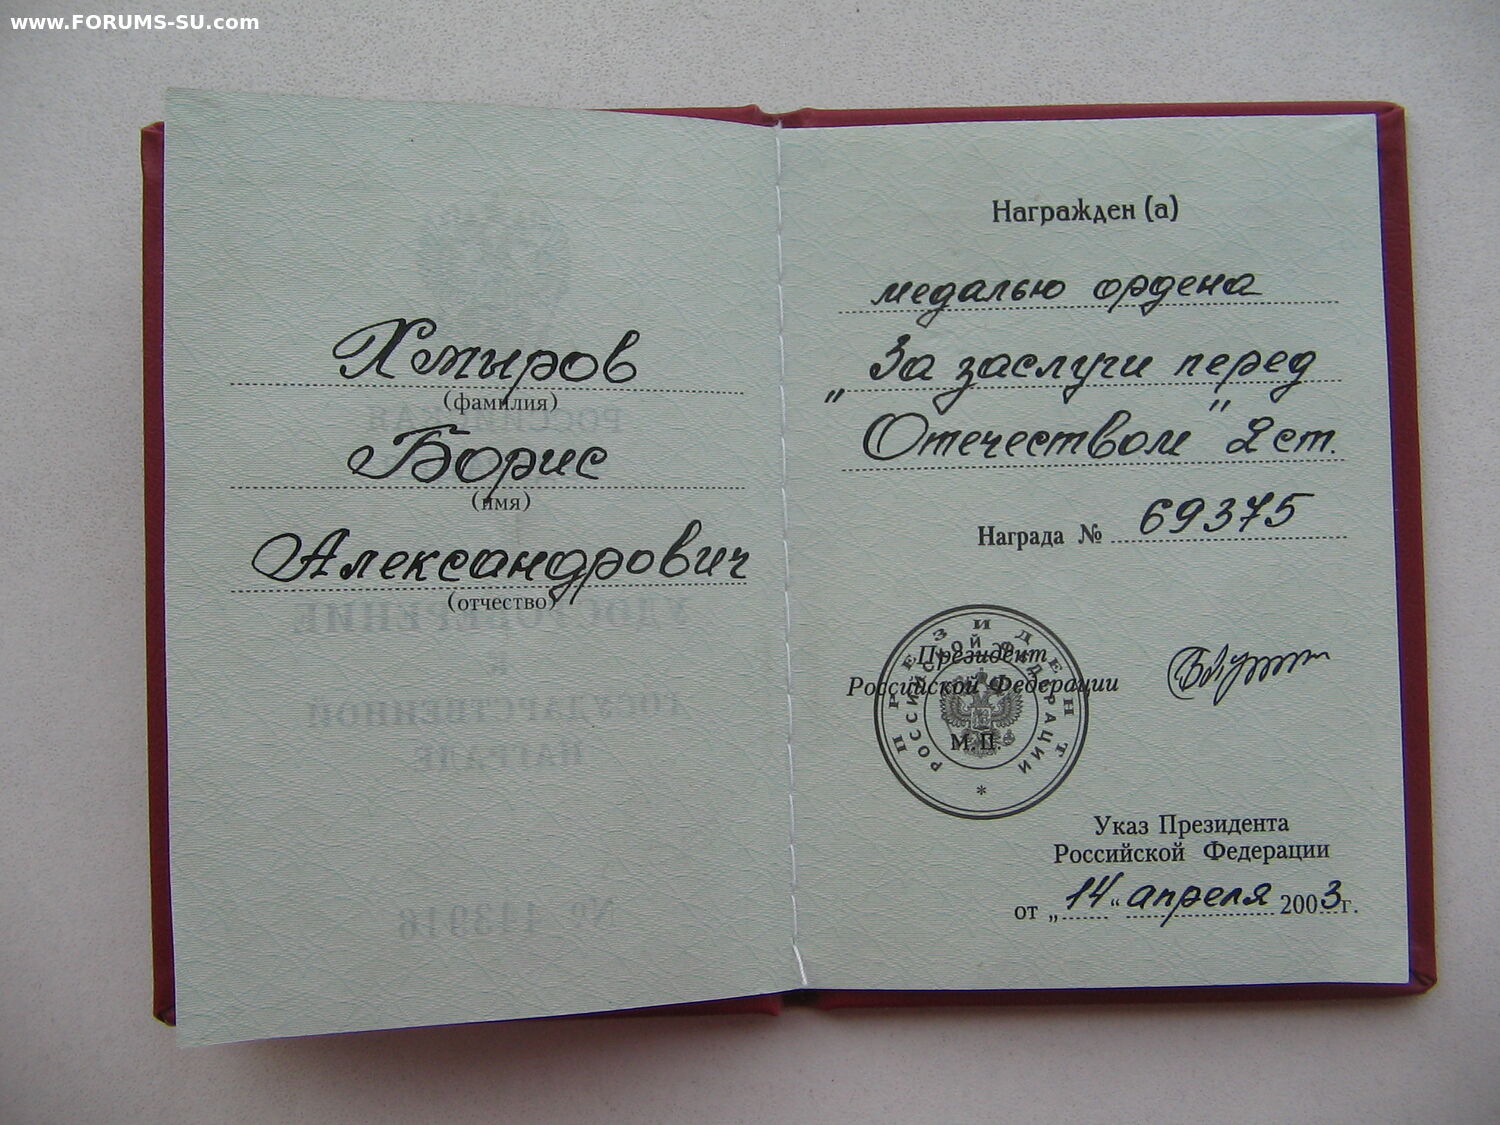 www.FORUMS-SU.com
Хмыров
(фамилия)
Борис
(имя)
Александрович
(отчество)
Награжден (а)
медалью ордена
„За заслуги перед
Отечеством" 2 ст.
Награда № 69375
Президент
Российской Федерации
М.П.
ПРЕЗИДЕНТ
РОССИЙСКОЙ ФЕДЕРАЦИИ
Указ Президента
Российской Федерации
от „14" апреля 2003г.